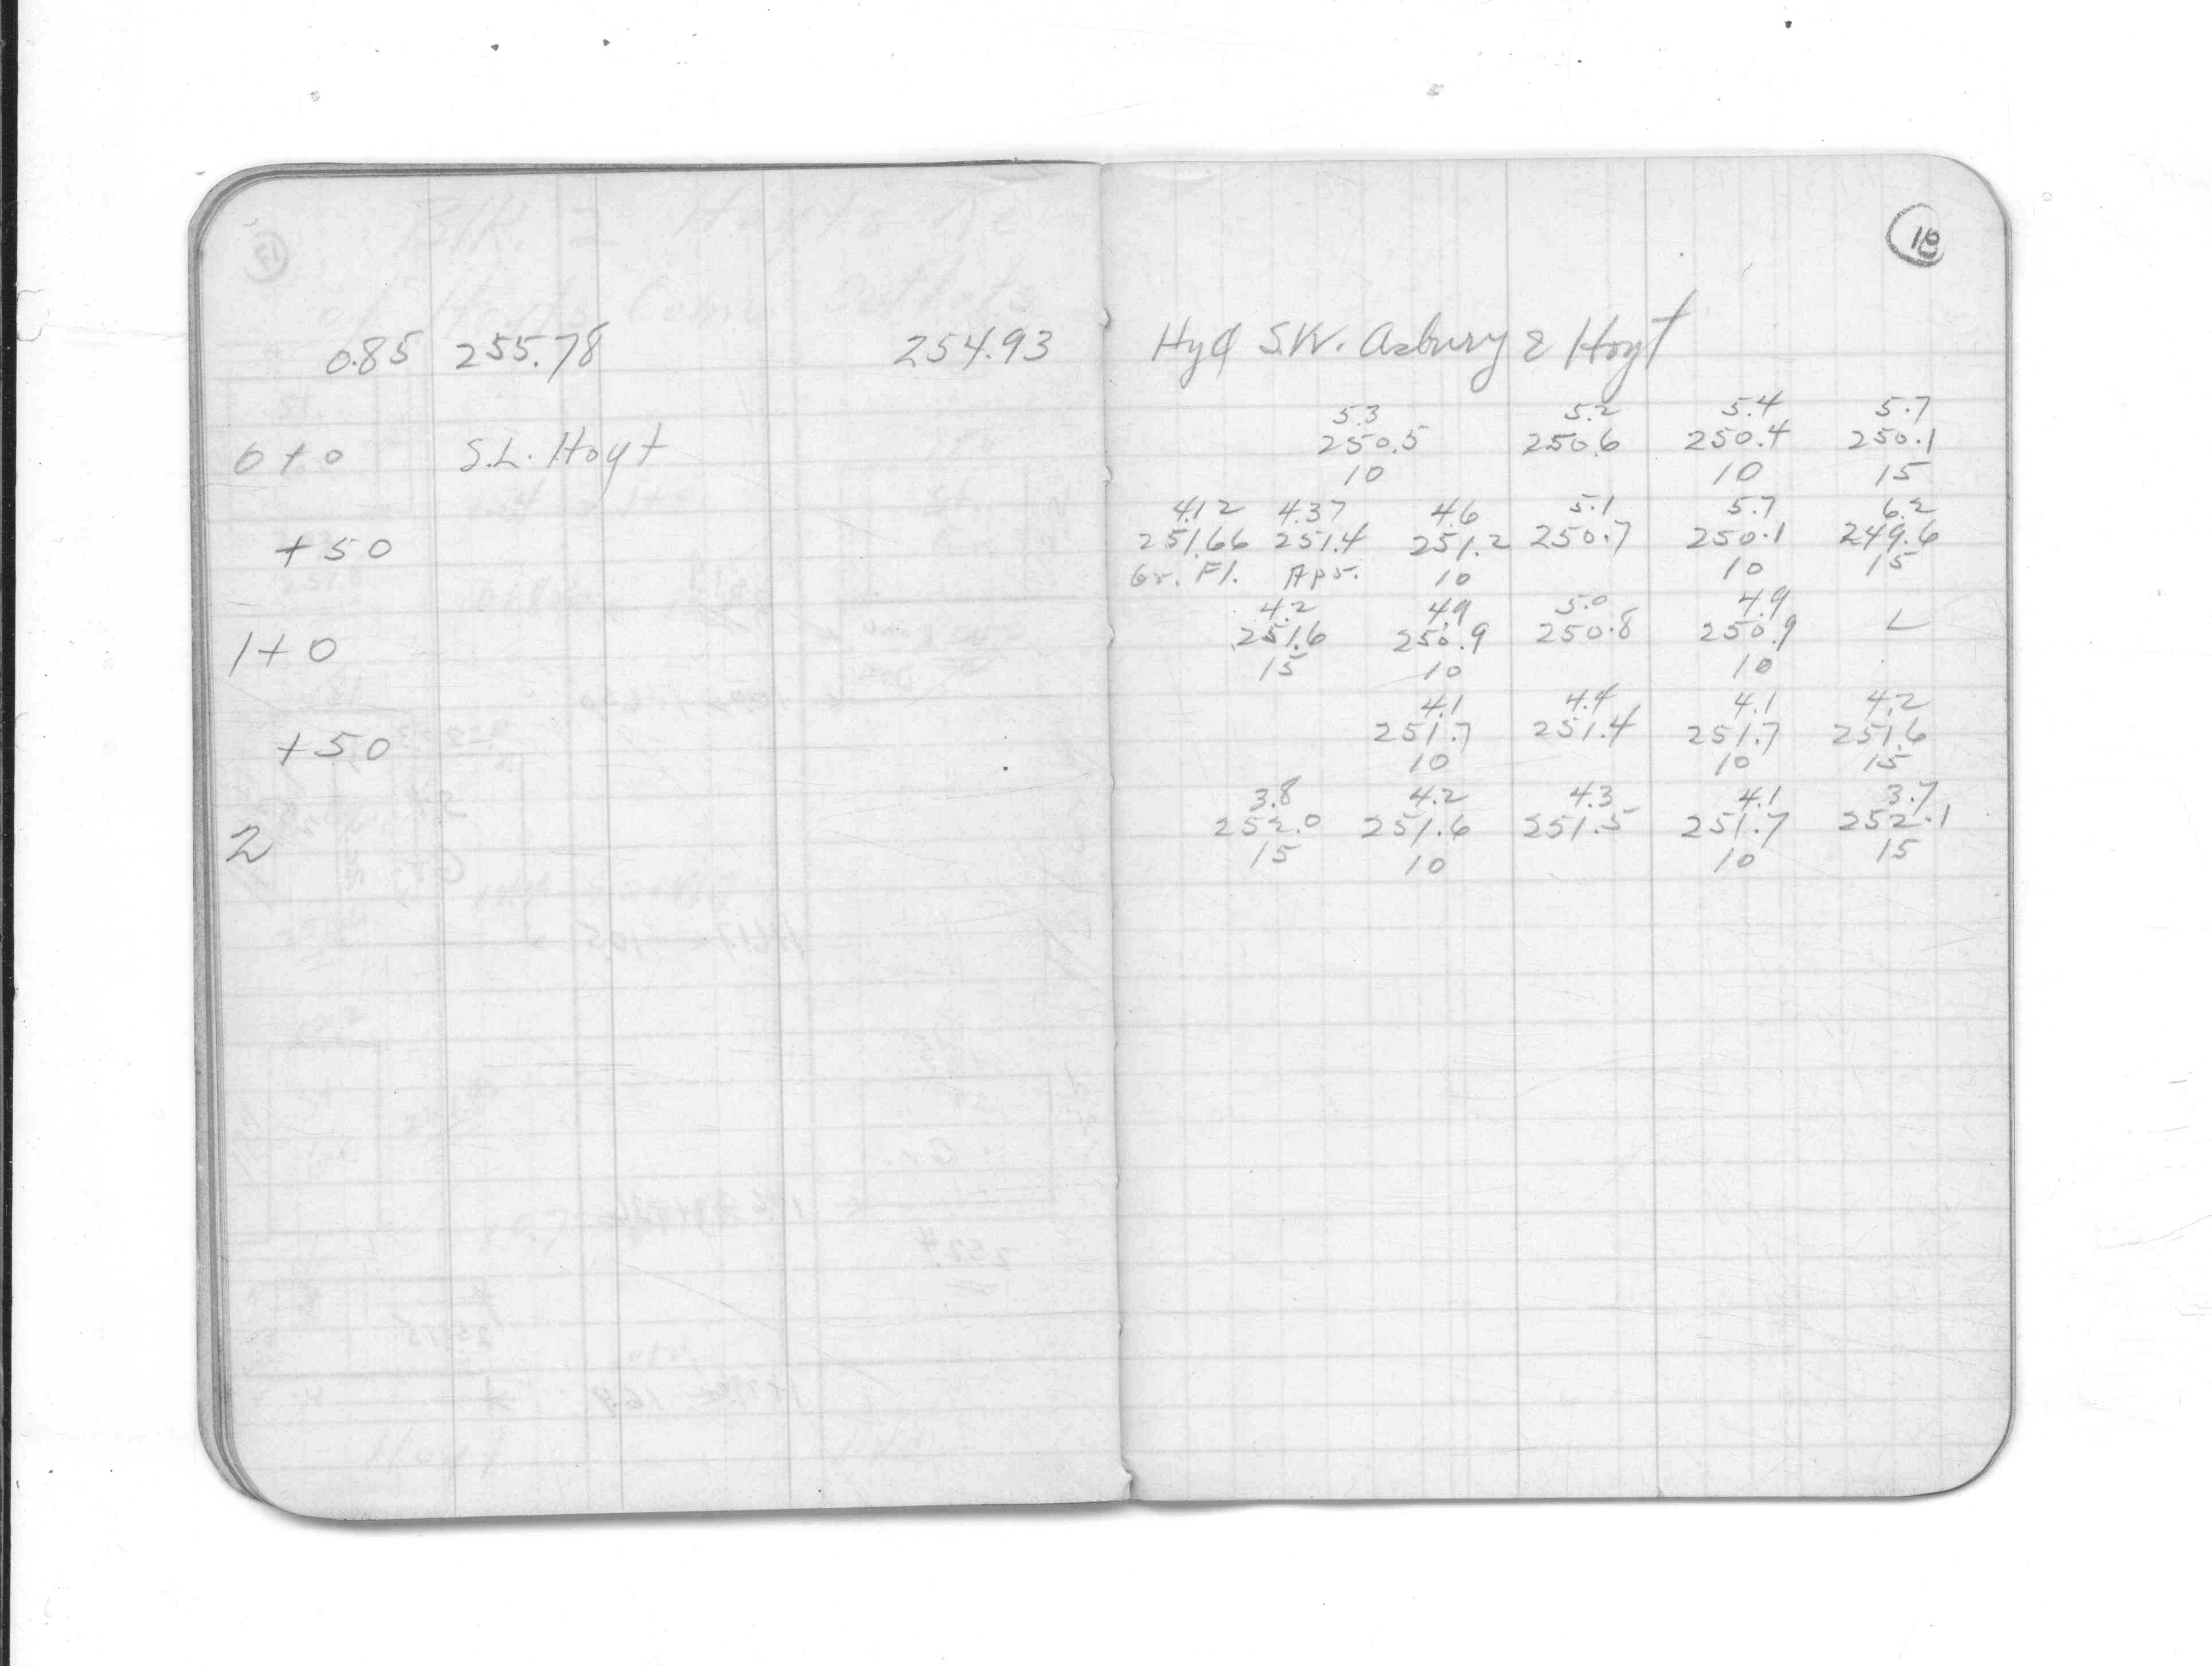 18
0.85 255.78 254.93 Hyd S.W. Asbury & Hoyt
5.3 5.2 5.4 5.7
0+0 S.L. Hoyt 250.5 250.6 250.4 250.1
10 10 15
4.12 4.37 4.6 5.1 5.7 6.2
+50 251.66 251.4 251.2 250.7 250.1 249.6
Gr. Fl. Apr. 10 10 15
4.2 4.9 5.0 4.9
1+0 251.6 250.9 250.8 250.9 L
15 10 10
4.1 4.4 4.1 4.2
+50 251.7 251.4 251.7 251.6
10 10 15
3.8 4.2 4.3 4.1 3.7
2 252.0 251.6 251.5 251.7 252.1
15 10 10 15